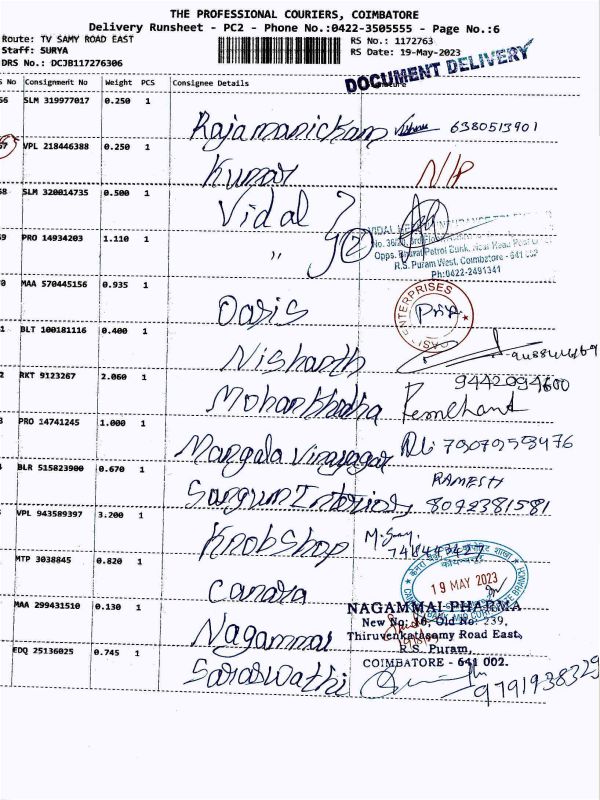 THE PROFESSIONAL COURIERS, COIMBATORE
Delivery Runsheet - PC2 - Phone No.:0422-3505555 - Page No.:6
Route: TV SAMY ROAD EAST
Staff: SURYA
DRS No.: DCJB117276306
RS No.: 1172763
RS Date: 19-May-2023
DOCUMENT DELIVERY
S No Consignment No Weight PCS Consignee Details
56 SLM 319977017 0.250 1 Rajamanickam 6380513901
57 VPL 218446388 0.250 1 Kumar N/P
58 SLM 320014735 0.500 1 Vidal
59 PRO 14934203 1.110 1 " 2
Opps. Bharat Petrol Bunk, Near Head Post
R.S. Puram West, Coimbatore - 641 002
Ph:0422-2491341
0 MAA 570445156 0.935 1 Oasis
ENTERPRISES
OASI
1 BLT 100181116 0.400 1 Nishanth
2 RKT 9123267 2.060 1 Mohankhadha 9442094600
3 PRO 14741245 1.000 1 Mangala Vinayagar 7907955476
4 BLR 515823900 0.670 1 Sangum Interiors RAMESH 8092381581
5 VPL 943589397 3.200 1 Knob Shop
MTP 3038845 0.820 1 Canara
19 MAY 2023
MAA 299431510 0.130 1 Nagammai
NAGAMMAI PHARMA
New No: 16, Old No: 239,
Thiruvenkatasamy Road East,
R.S. Puram,
COIMBATORE - 641 002.
EDQ 25136025 0.745 1 Saraswathi 9791938329